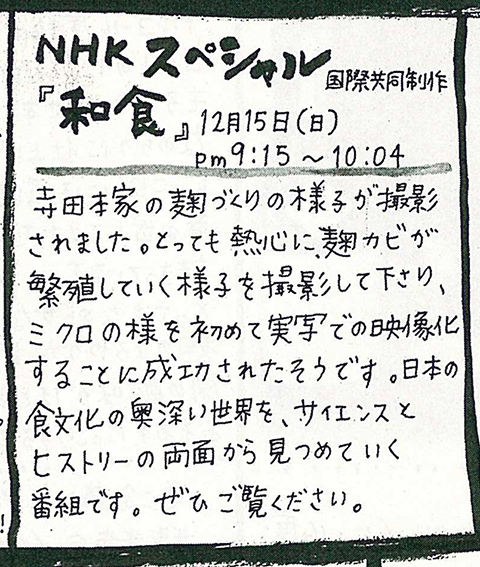 NHK スペシャル 国際共同制作
『和食』12月15日(日)
pm9:15 ～ 10:04
寺田本家の麹づくりの様子が撮影
されました。とっても熱心に、麹カビが
繁殖していく様子を撮影して下さり、
ミクロの様を初めて実写での映像化
することに成功されたそうです。日本の
食文化の奥深い世界を、サイエンスと
ヒストリーの両面から見つめていく
番組です。ぜひご覧ください。